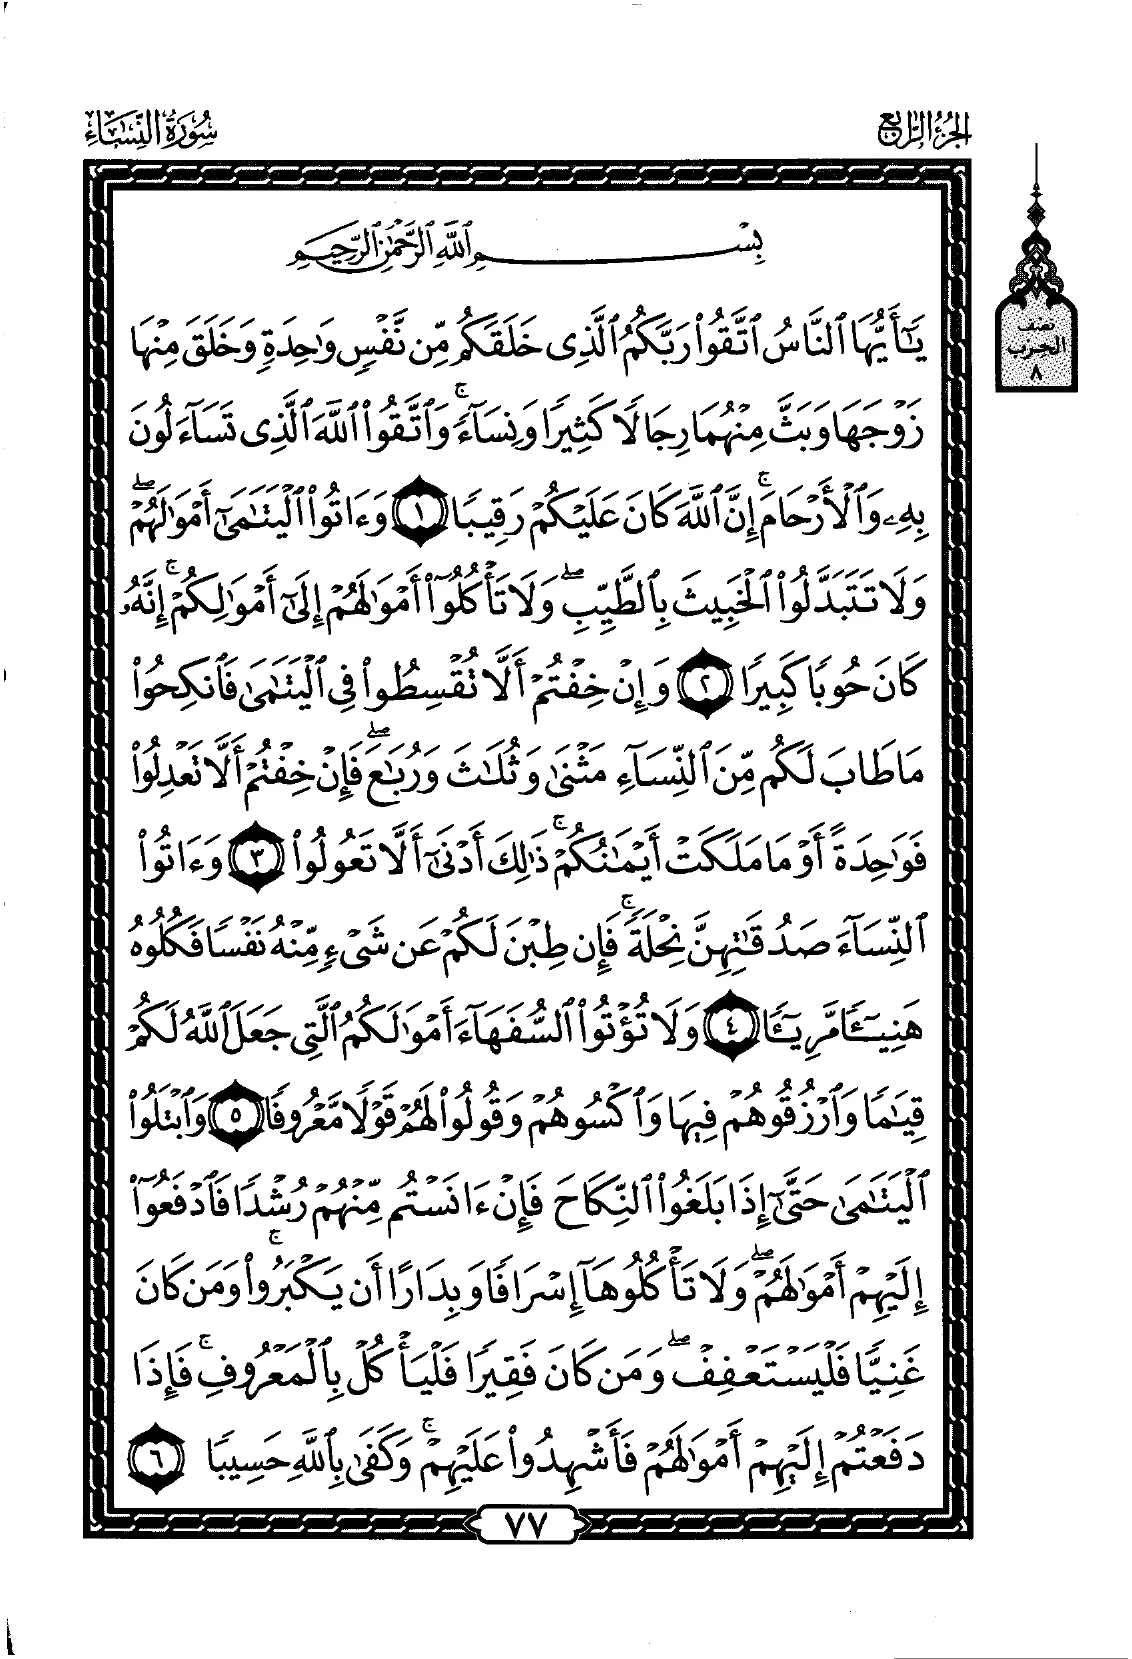 الجزء الرابع
سورة النساء
نصف
الحزب
٨
بِسْمِ ٱللَّهِ ٱلرَّحْمَٰنِ ٱلرَّحِيمِ
يَٰٓأَيُّهَا ٱلنَّاسُ ٱتَّقُوا۟ رَبَّكُمُ ٱلَّذِى خَلَقَكُم مِّن نَّفْسٍ وَٰحِدَةٍ وَخَلَقَ مِنْهَا
زَوْجَهَا وَبَثَّ مِنْهُمَا رِجَالًا كَثِيرًا وَنِسَآءً ۚ وَٱتَّقُوا۟ ٱللَّهَ ٱلَّذِى تَسَآءَلُونَ
بِهِۦ وَٱلْأَرْحَامَ ۚ إِنَّ ٱللَّهَ كَانَ عَلَيْكُمْ رَقِيبًا ١ وَءَاتُوا۟ ٱلْيَتَٰمَىٰٓ أَمْوَٰلَهُمْ ۖ
وَلَا تَتَبَدَّلُوا۟ ٱلْخَبِيثَ بِٱلطَّيِّبِ ۖ وَلَا تَأْكُلُوٓا۟ أَمْوَٰلَهُمْ إِلَىٰٓ أَمْوَٰلِكُمْ ۚ إِنَّهُۥ
كَانَ حُوبًا كَبِيرًا ٢ وَإِنْ خِفْتُمْ أَلَّا تُقْسِطُوا۟ فِى ٱلْيَتَٰمَىٰ فَٱنكِحُوا۟
مَا طَابَ لَكُم مِّنَ ٱلنِّسَآءِ مَثْنَىٰ وَثُلَٰثَ وَرُبَٰعَ ۖ فَإِنْ خِفْتُمْ أَلَّا تَعْدِلُوا۟
فَوَٰحِدَةً أَوْ مَا مَلَكَتْ أَيْمَٰنُكُمْ ۚ ذَٰلِكَ أَدْنَىٰٓ أَلَّا تَعُولُوا۟ ٣ وَءَاتُوا۟
ٱلنِّسَآءَ صَدُقَٰتِهِنَّ نِحْلَةً ۚ فَإِن طِبْنَ لَكُمْ عَن شَىْءٍ مِّنْهُ نَفْسًا فَكُلُوهُ
هَنِيٓـًٔا مَّرِيٓـًٔا ٤ وَلَا تُؤْتُوا۟ ٱلسُّفَهَآءَ أَمْوَٰلَكُمُ ٱلَّتِى جَعَلَ ٱللَّهُ لَكُمْ
قِيَٰمًا وَٱرْزُقُوهُمْ فِيهَا وَٱكْسُوهُمْ وَقُولُوا۟ لَهُمْ قَوْلًا مَّعْرُوفًا ٥ وَٱبْتَلُوا۟
ٱلْيَتَٰمَىٰ حَتَّىٰٓ إِذَا بَلَغُوا۟ ٱلنِّكَاحَ فَإِنْ ءَانَسْتُم مِّنْهُمْ رُشْدًا فَٱدْفَعُوٓا۟
إِلَيْهِمْ أَمْوَٰلَهُمْ ۖ وَلَا تَأْكُلُوهَآ إِسْرَافًا وَبِدَارًا أَن يَكْبَرُوا۟ ۚ وَمَن كَانَ
غَنِيًّا فَلْيَسْتَعْفِفْ ۖ وَمَن كَانَ فَقِيرًا فَلْيَأْكُلْ بِٱلْمَعْرُوفِ ۚ فَإِذَا
دَفَعْتُمْ إِلَيْهِمْ أَمْوَٰلَهُمْ فَأَشْهِدُوا۟ عَلَيْهِمْ ۚ وَكَفَىٰ بِٱللَّهِ حَسِيبًا ٦
٧٧